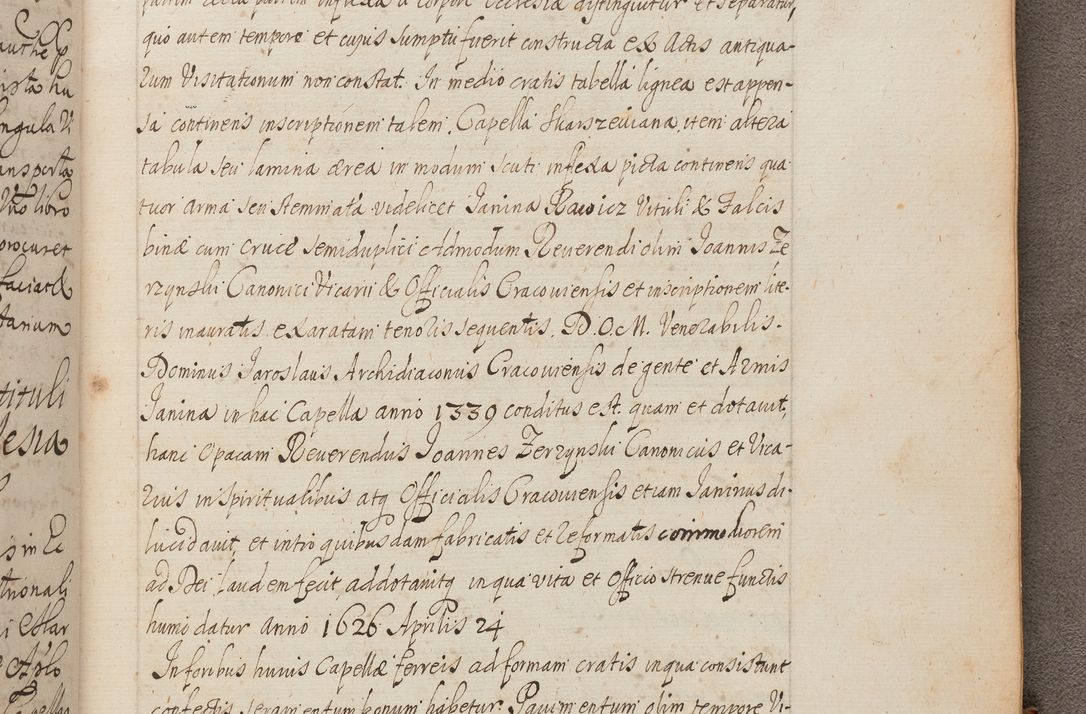 quo autem tempore et cujus sumptu fuerit constructa ex Actis antiqua-
rum Visitationum non constat. In medio cratis tabella lignea est appen-
sa continens inscriptionem talem. Capella Skarszewiana, item altera
tabula seu lamina ærea in modum scuti infixa picta continens qua
tuor arma seu stemmata videlicet Janina Rawicz Vituli & Falcis
binæ cum cruce semiduplici Admodum Reverendi olim Joannis Ze
rzynski Canonici Vicarii & Officialis Cracoviensis et inscriptionem lite-
ris inauratis exaratam tenoris sequentis. D.O.M. Venerabilis.
Dominus Jaroslaus Archidiaconus Cracoviensis de gente et Armis
Janina in hac Capella anno 1339 conditus est. quam et dotavit,
hanc Opacam Reverendus Joannes Zerzynski Canonicus et Vica-
rius in Spiritualibus atq Officialis Cracoviensis etiam Janinus di-
lucidavit, et intro quibusdam fabricatis et reformatis commodiorem
ad Dei laudem fecit addotavitq in qua vita et Officio strenue functus
humi datur Anno 1626 Aprilis 24
In foribus hujus Capellæ ferreis ad formam cratis in qua consistunt
confectis seramentum bonum habetur. Pavimentum olim tempore Vi-
auth
ista hu
ngula Vi
ansporta
Uno libro
procuret
faciat &
tarium
tituli
lesia
is in Ec
tuonali
i Mar
Aplo